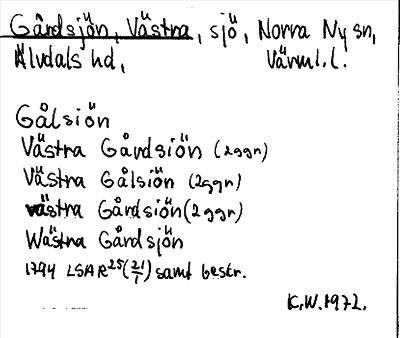 Gårdsjön, Västra, sjö, Norra Ny sn,
Älvdals hd, Värml.l.
Gålsiön
Västra Gårdsiön (2ggr)
Västra Gålsiön (2ggr)
västra Gårdsiön (2ggr)
Wästra Gårdsjön
1794 LSA R25 (21/1) samt beskr.
K.W. 1972.